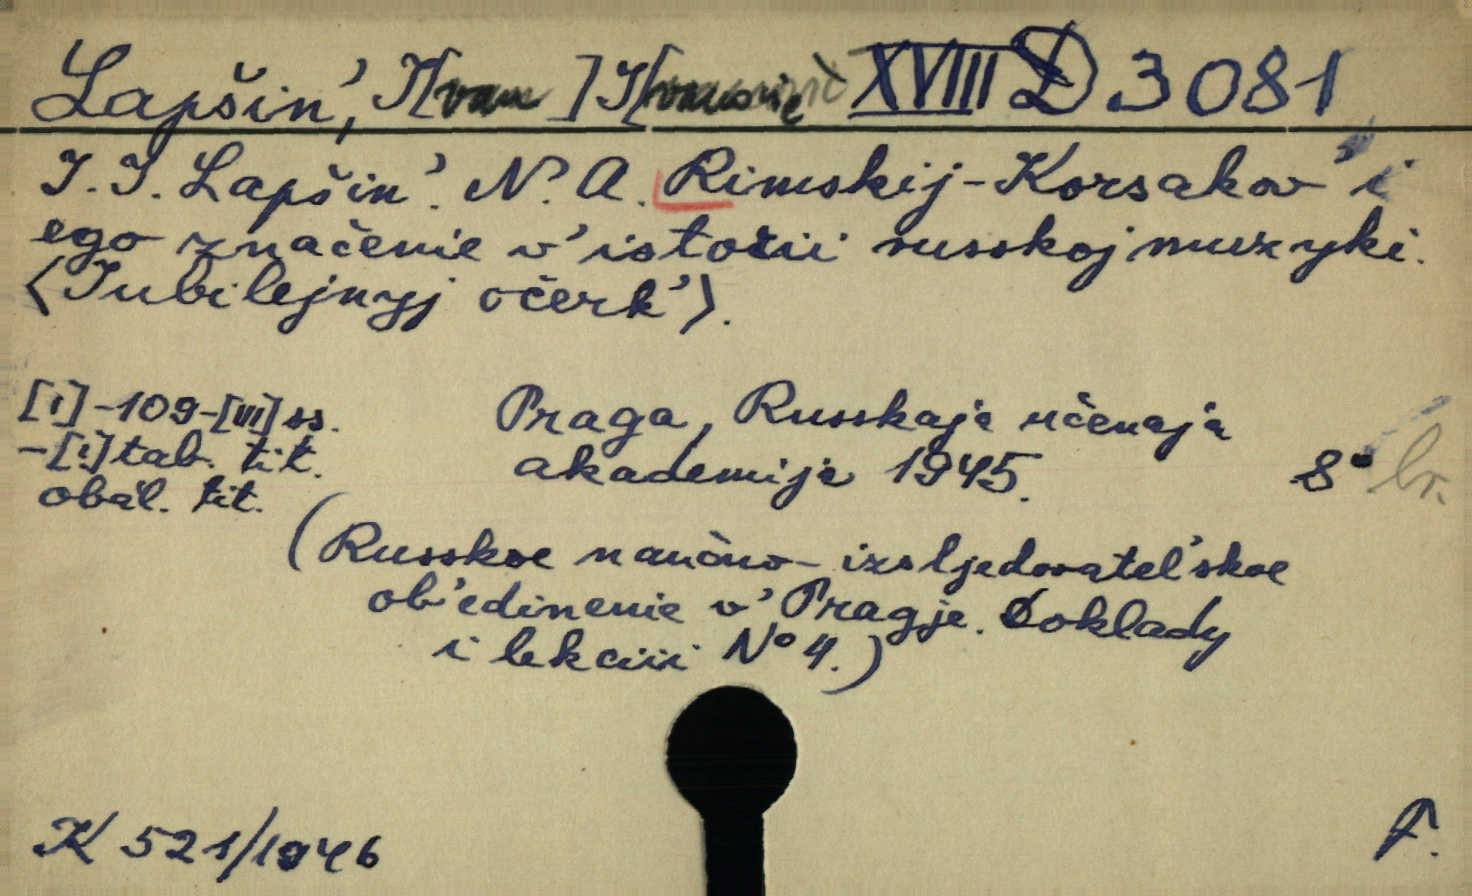 Lapšin', I[van] I[vanovič XVIII D 3081
I. I. Lapšin'. N. A. Rimskij-Korsakov' i
ego značenie v' istorii russkoj muzyki.
〈Jubilejnyj očerk'〉.
[I]-109-[VI] ss.
-[I] tab. tit.
obál. tit.
Praga, Russkaja učenaja
akademija 1945.
8° br.
(Russkoe naučno-izsljedovatel'skoe
ob'edinenie v' Pragje. Doklady
i lekcii No 4.)
K 521/1946
F.